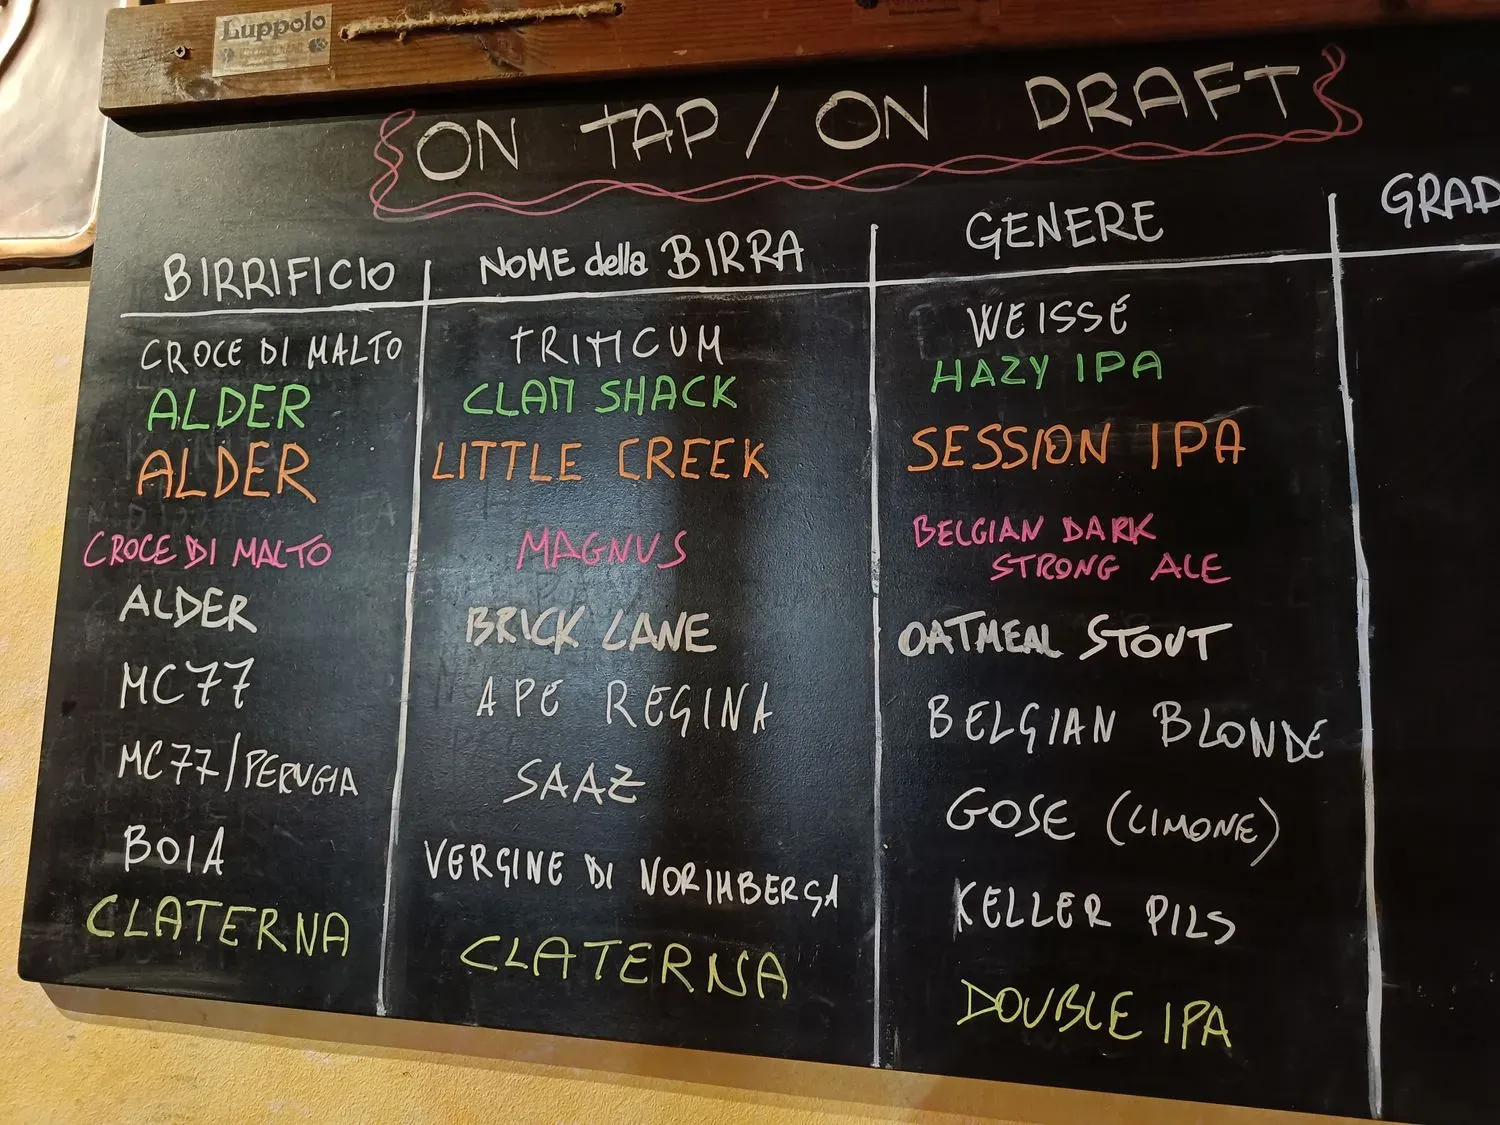 Luppolo
ON TAP / ON DRAFT
BIRRIFICIO NOME della BIRRA GENERE GRAD
CROCE DI MALTO TRITICUM WEISSE
ALDER CLAM SHACK HAZY IPA
ALDER LITTLE CREEK SESSION IPA
CROCE DI MALTO MAGNUS BELGIAN DARK
STRONG ALE
ALDER BRICK LANE OATMEAL STOUT
MC77 APE REGINA BELGIAN BLONDE
MC77/PERUGIA SAAZ GOSE (LIMONE)
BOIA VERGINE DI NORIMBERGA KELLER PILS
CLATERNA CLATERNA DOUBLE IPA